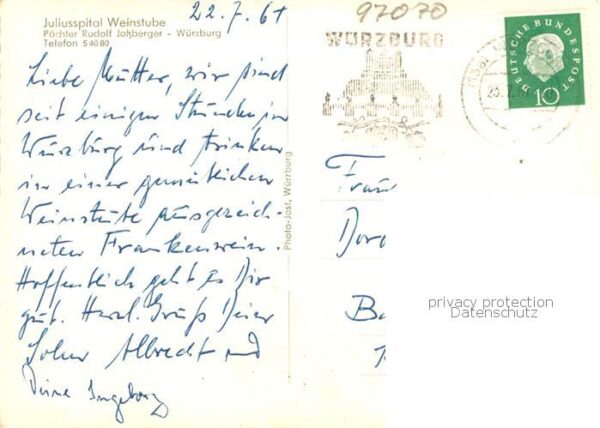 Juliusspital Weinstube
Pächter Rudolf Joßberger - Würzburg
Telefon 54080
22.7.61
Liebe Mutter, wir sind
seit einigen Stunden in
Würzburg und trinken
in einer gemütlichen
Weinstube ausgezeich-
neten Frankenwein.
Hoffentlich geht es Dir
gut. Herzl. Gruß Deine
Sohn Albrecht und
Deine Ingeborg
Photo-Jost, Würzburg
97070
WÜRZBURG
DEUTSCHE BUNDESPOST
10
Frau
Doro
Ba
privacy protection
Datenschutz